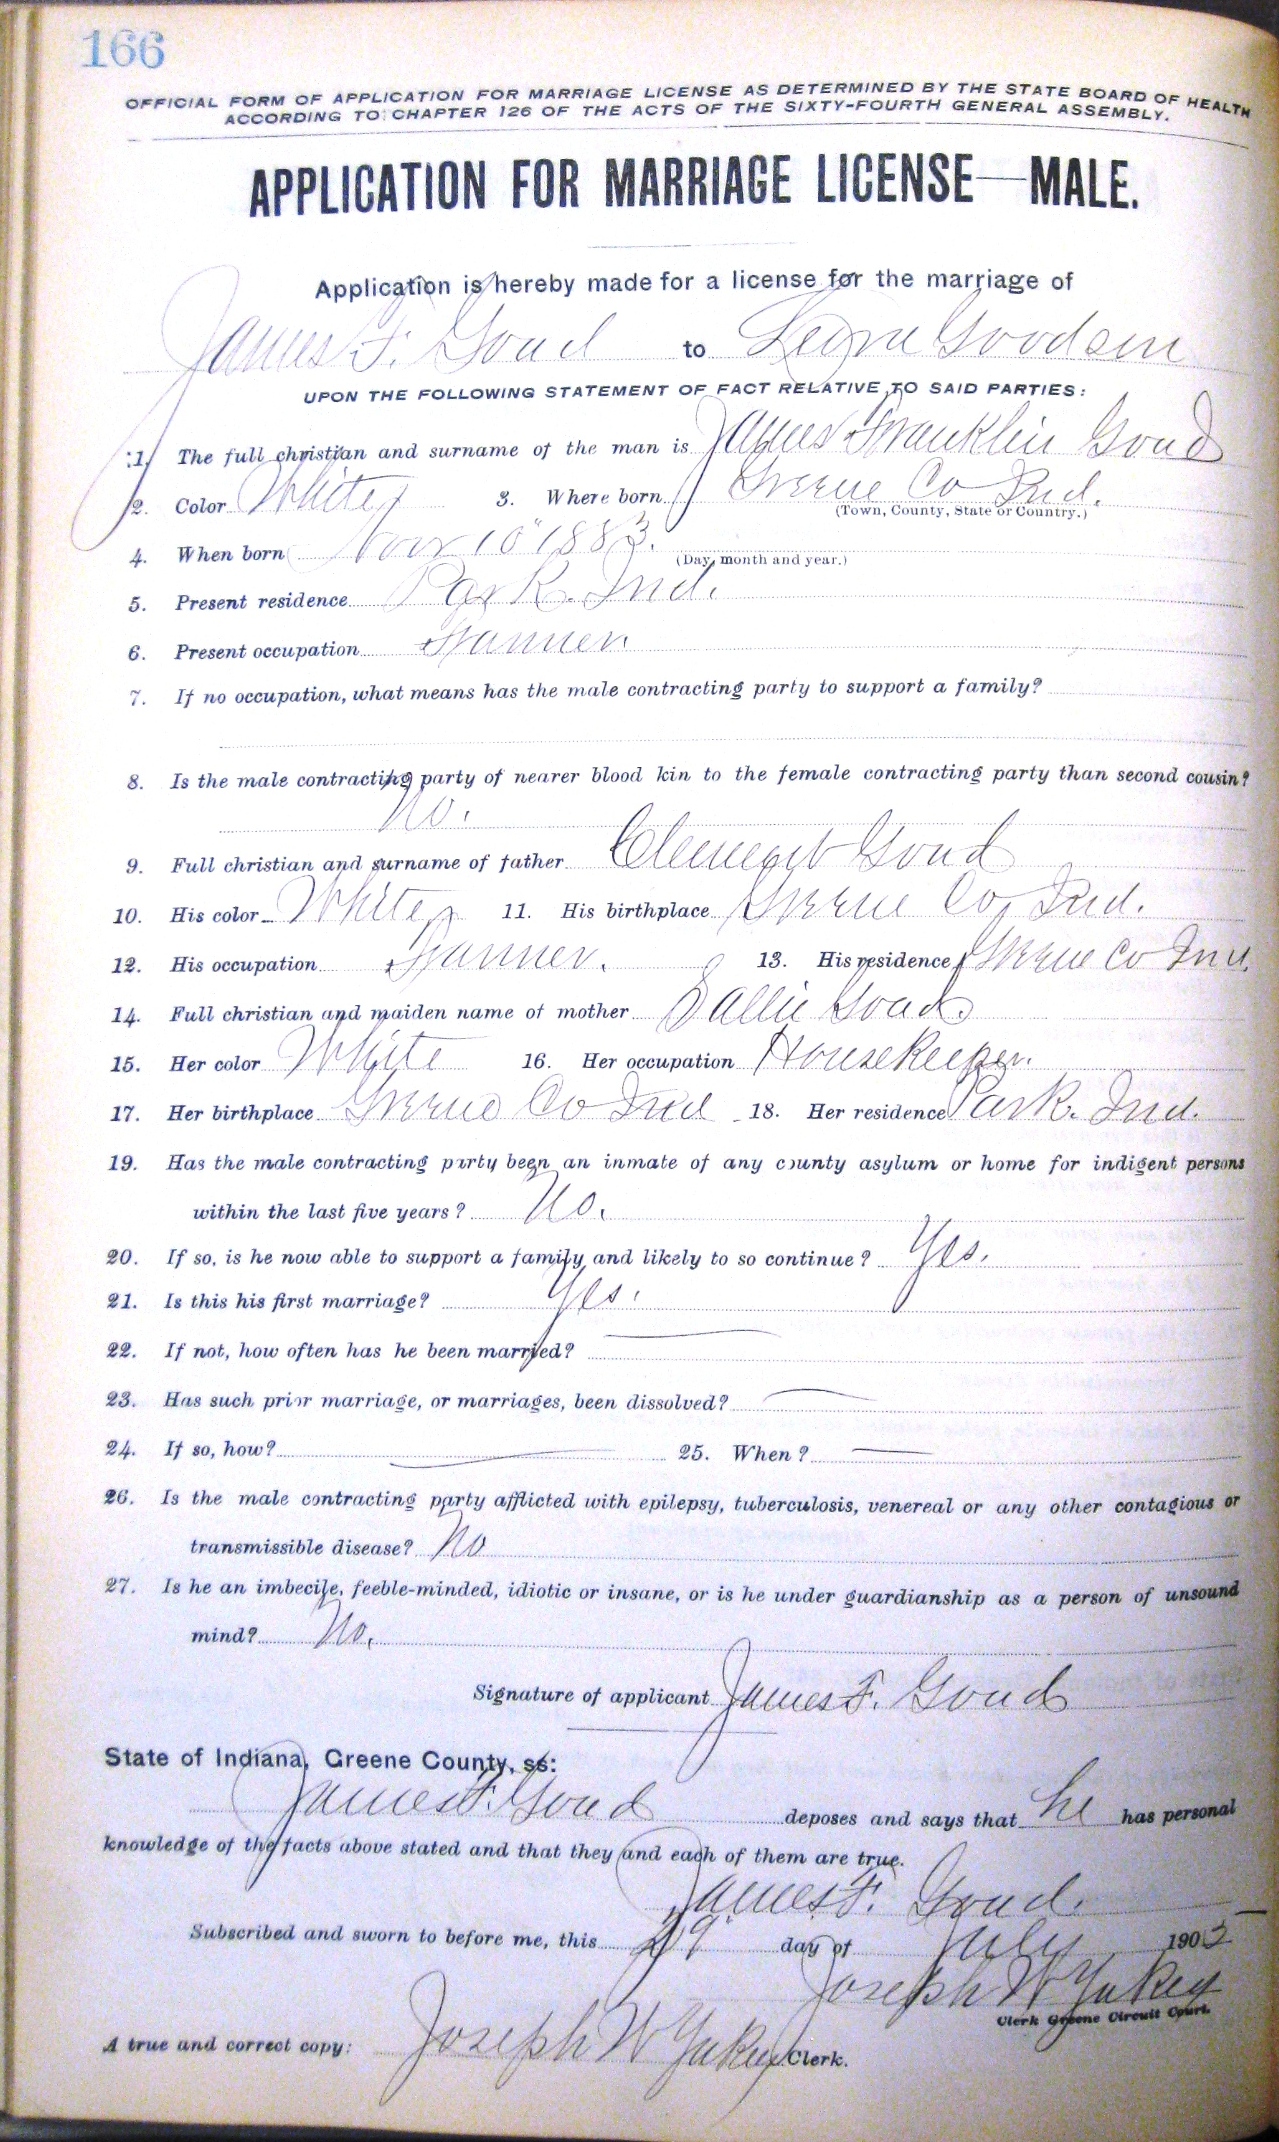 166
OFFICIAL FORM OF APPLICATION FOR MARRIAGE LICENSE AS DETERMINED BY THE STATE BOARD OF HEALTH
ACCORDING TO CHAPTER 126 OF THE ACTS OF THE SIXTY-FOURTH GENERAL ASSEMBLY.
APPLICATION FOR MARRIAGE LICENSE—MALE.
Application is hereby made for a license for the marriage of
James F. Goad to Goodson
UPON THE FOLLOWING STATEMENT OF FACT RELATIVE TO SAID PARTIES:
1. The full christian and surname of the man is James Franklin Goad
2. Color White 3. Where born Greene Co Ind.
(Town, County, State or Country.)
4. When born Nov 10" 1883.
(Day, month and year.)
5. Present residence Park. Ind.
6. Present occupation Farmer.
7. If no occupation, what means has the male contracting party to support a family?
8. Is the male contracting party of nearer blood kin to the female contracting party than second cousin?
No.
9. Full christian and surname of father Clement Goad
10. His color White 11. His birthplace Greene Co, Ind.
12. His occupation Farmer. 13. His residence Greene Co Ind.
14. Full christian and maiden name of mother Sallie Goad.
15. Her color White 16. Her occupation Housekeeper.
17. Her birthplace Greene Co Ind 18. Her residence Park. Ind.
19. Has the male contracting party been an inmate of any county asylum or home for indigent persons
within the last five years? No.
20. If so, is he now able to support a family and likely to so continue? Yes.
21. Is this his first marriage? Yes.
22. If not, how often has he been married?
23. Has such prior marriage, or marriages, been dissolved?
24. If so, how? 25. When?
26. Is the male contracting party afflicted with epilepsy, tuberculosis, venereal or any other contagious or
transmissible disease? No
27. Is he an imbecile, feeble-minded, idiotic or insane, or is he under guardianship as a person of unsound
mind? No.
Signature of applicant James F. Goad
State of Indiana, Greene County, ss:
James F. Goad deposes and says that he has personal
knowledge of the facts above stated and that they and each of them are true.
James F. Goad.
Subscribed and sworn to before me, this 29" day of July 1905
Joseph W Yakey
Clerk Greene Circuit Court.
A true and correct copy: Joseph W Yakey Clerk.